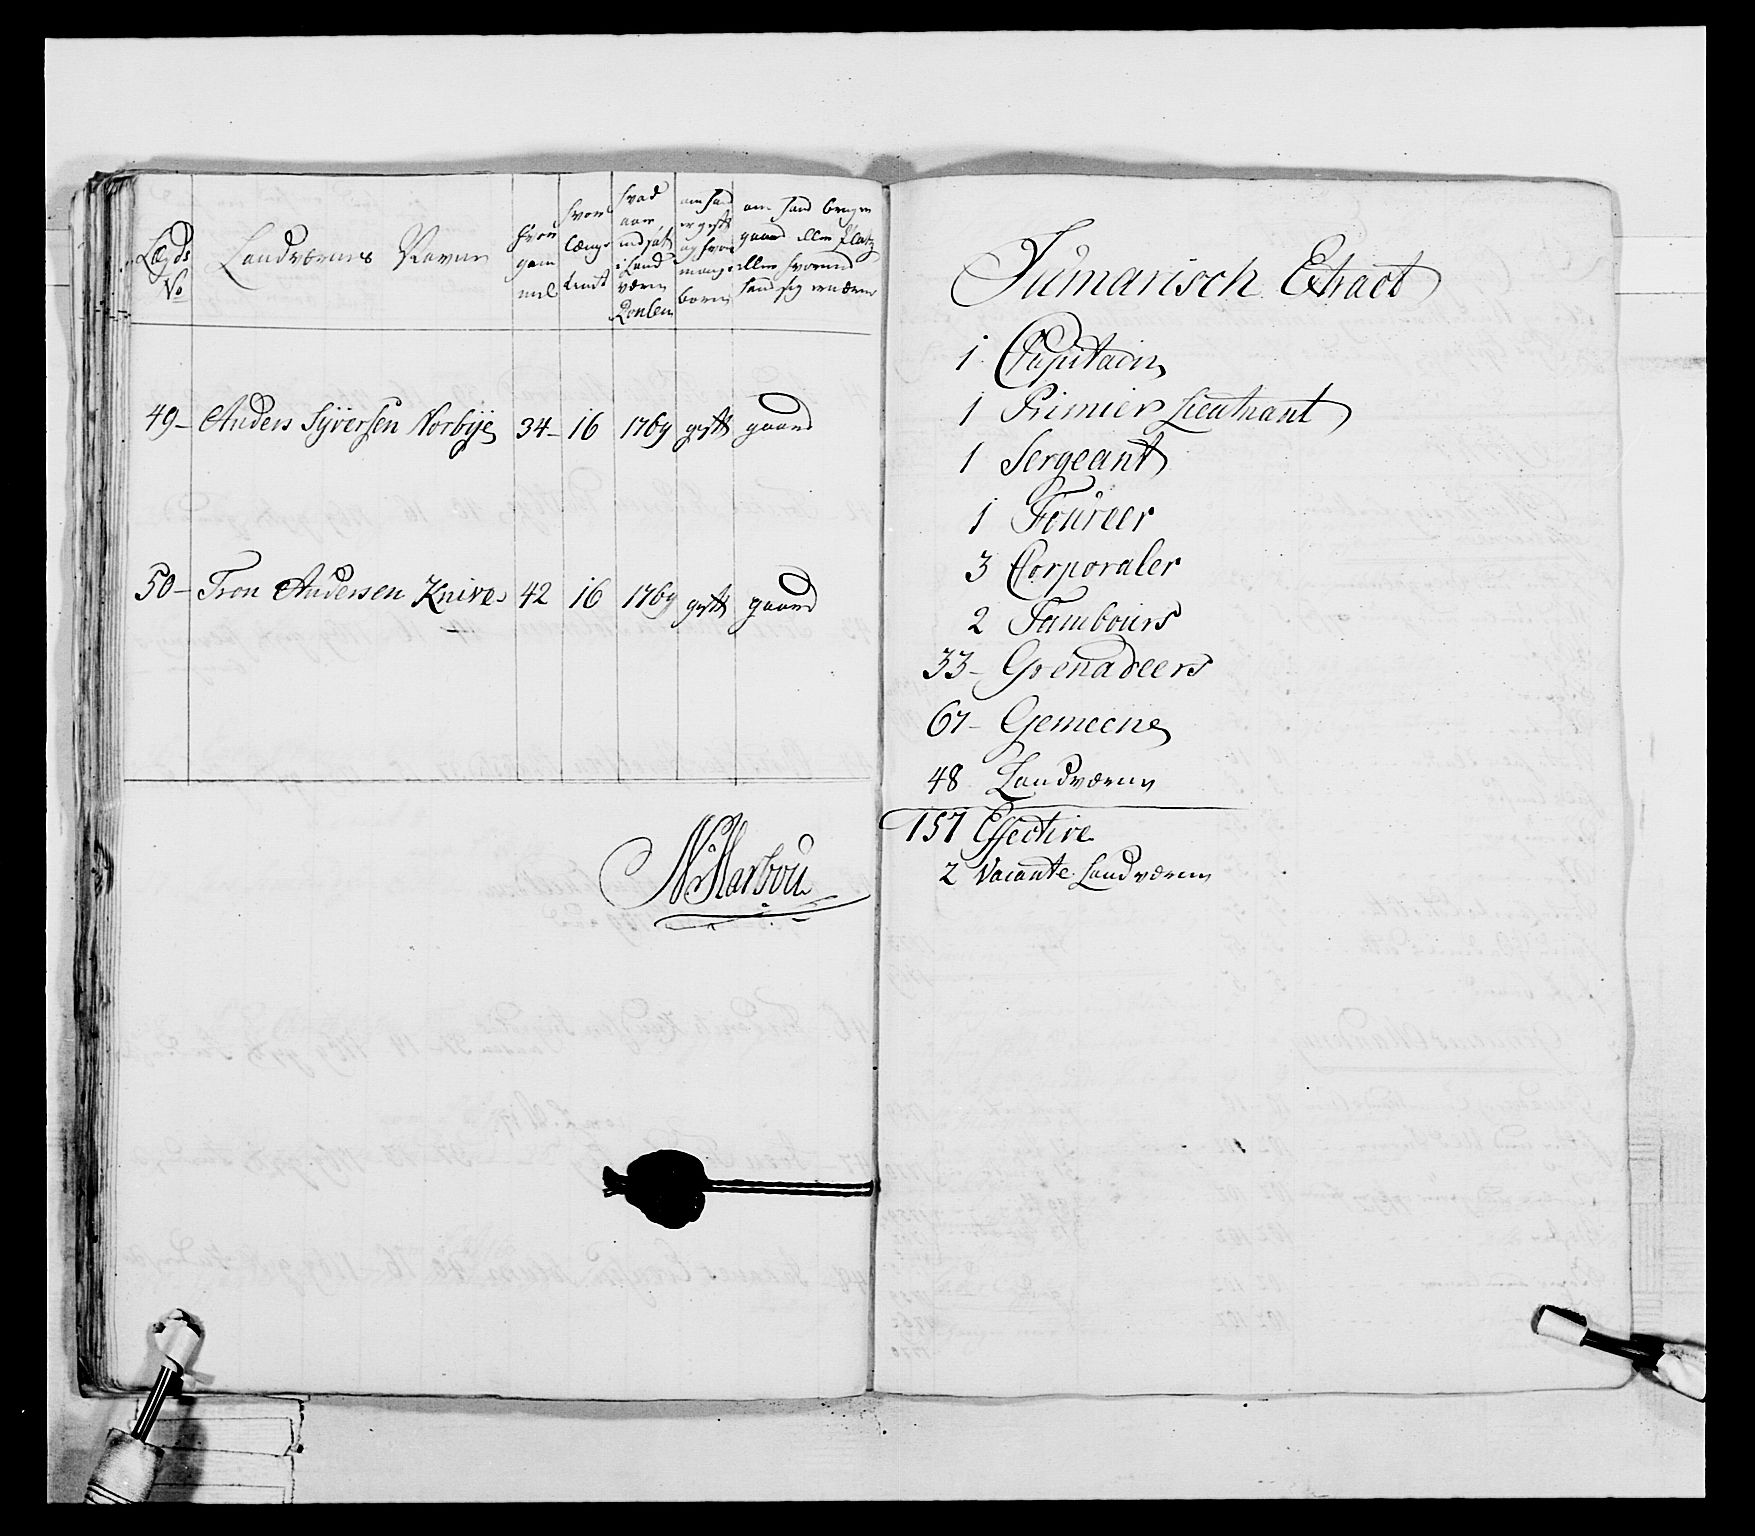 Lægds No
Landværnes Navne
hvor gam̄el
hvor længe tient
hvad aar indsat i Land værn Roulen
om hand er gift og hvor mange børn
om hand bruger gaard eller platz eller hvormed hand sig ernærer
49- Anders Syversen Norbye 34- 16 1769 gift gaard
50- Tron Andersen Knive 42 16 1769 gift gaard
N Harbou
Sumarisch Extract
1 Capitain
1 Primier Lieutnant
1 Sergeant
1 Foureer
3 Corporaler
2 Tambours
33- Grenadeers
67- Gemeene
48 Landværn
157 Effective
2 Vacante Landværn